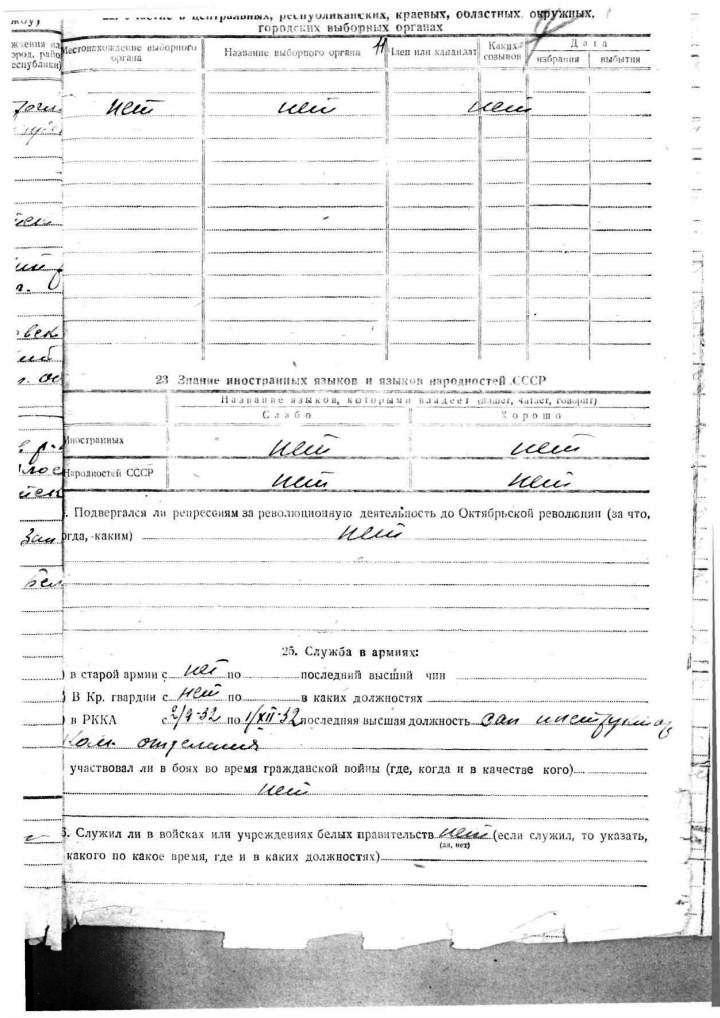 центральных, республиканских, краевых, областных окружных,
городских выборных органах
Местонахождение выборного органа
Название выборного органа
Член или кандидат
Каких созывов
Дата
избрания
выбытия
нет нет нет
23 Знание иностранных языков и языков народностей СССР
Название языков, которыми владеет (пишет, читает, говорит)
Слабо Хорошо
Иностранных нет нет
Народностей СССР нет нет
. Подвергался ли репрессиям за революционную деятельность до Октябрьской революции (за что,
огда, каким) нет
25. Служба в армиях:
) в старой армии с нет по последний высший чин
) В Кр. гвардии с нет по в каких должностях
) в РККА с по 1/XII-32 последняя высшая должность сан инструктор
Ком. отделения
участвовал ли в боях во время гражданской войны (где, когда и в качестве кого)
нет
. Служил ли в войсках или учреждениях белых правительств нет (если служил, то указать,
(да, нет)
какого по какое время, где и в каких должностях)